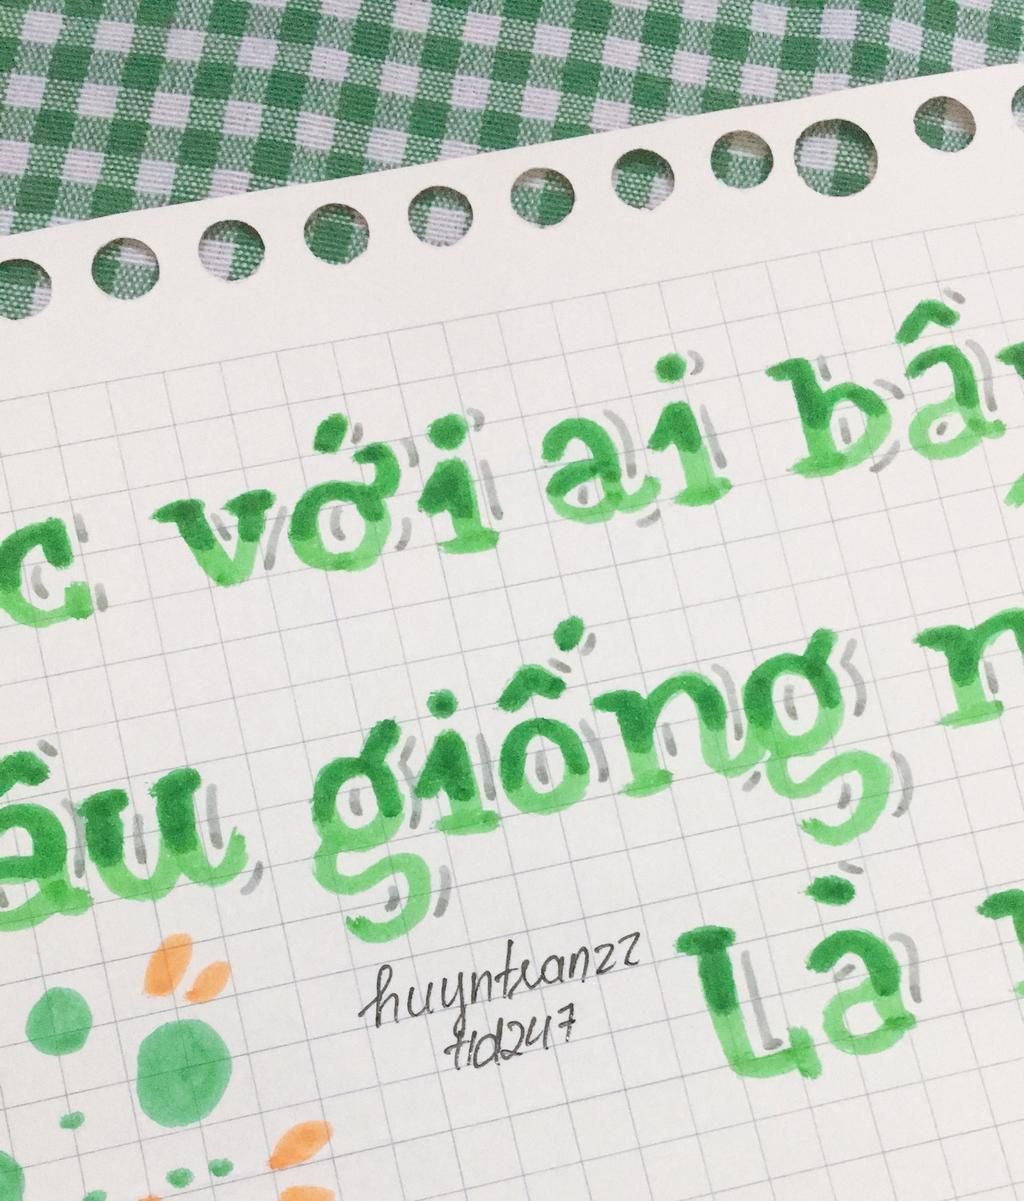 c với ai bây
âu giống n
huyntranzz
td247
Là